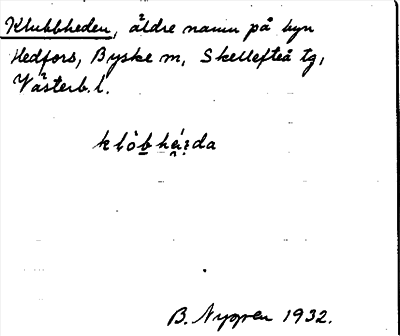 Klubbheden, äldre namn på byn
Hedfors, Byske m, Skellefteå tg,
Västerb. l.
B. Nygren 1932.